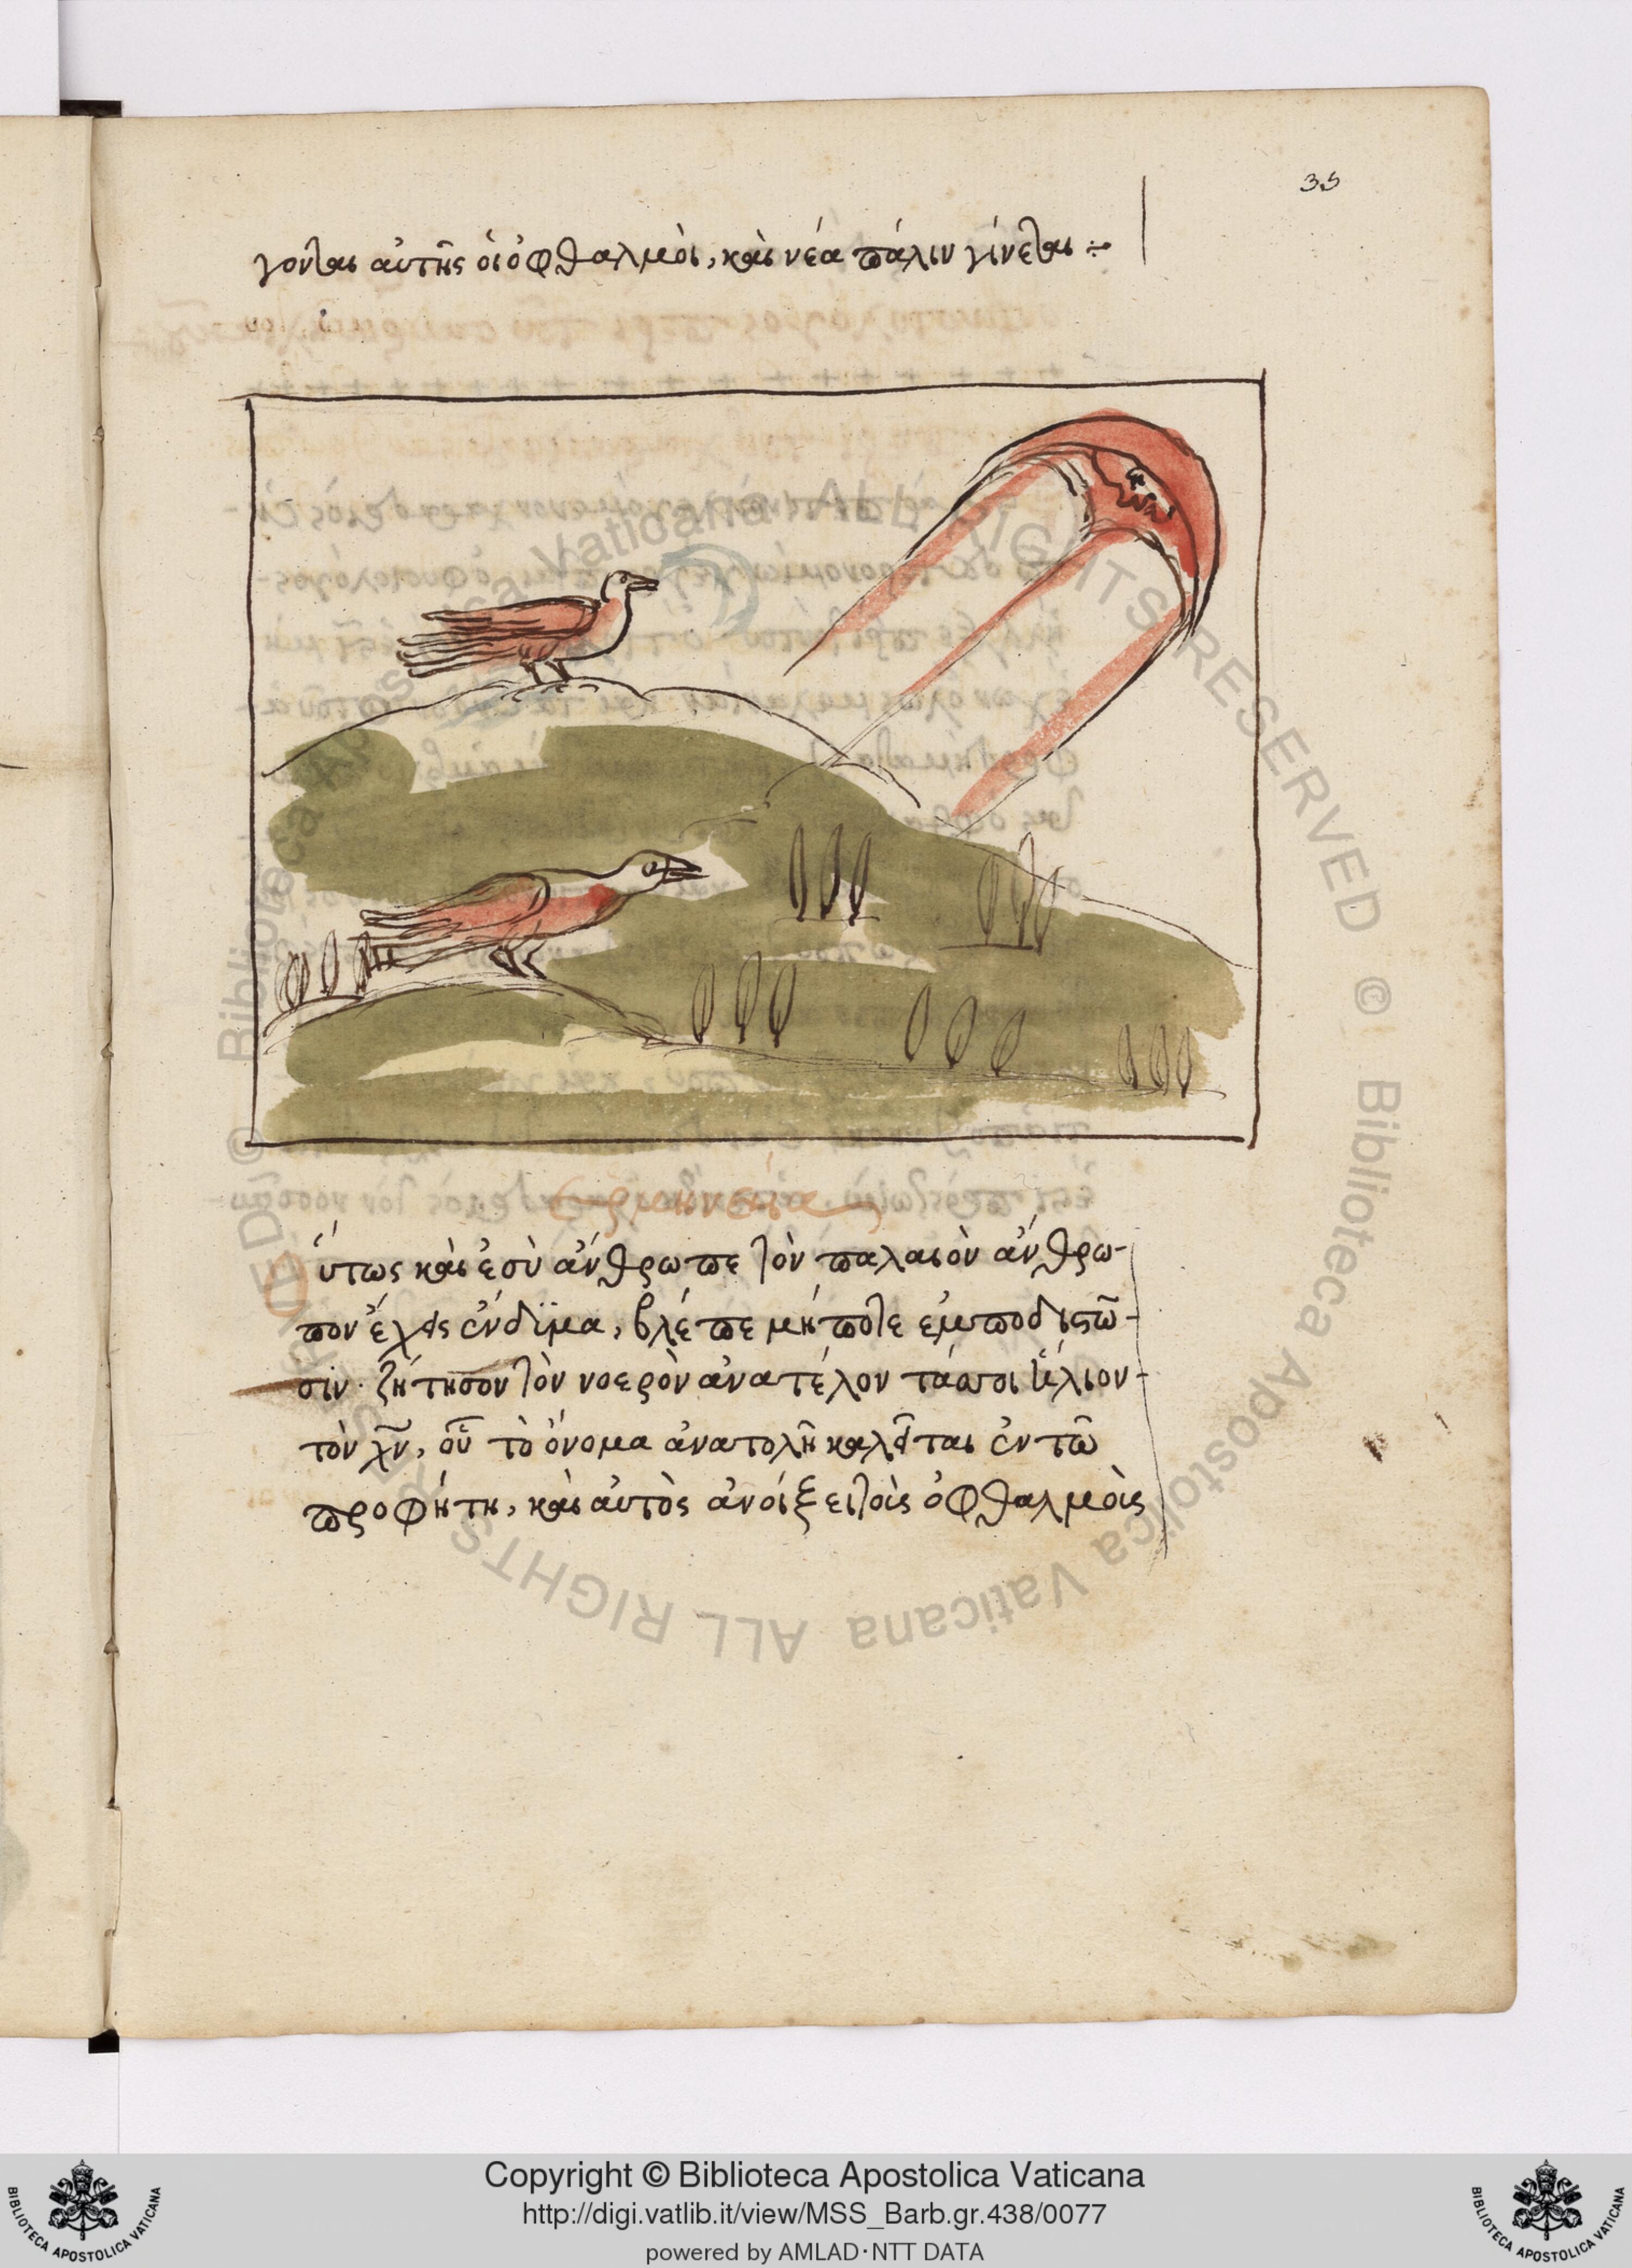 35
γονται αὐτῆς ὁι ὀφθαλμὸι, καὶ νέα πάλιν γίνεται
ἑρμηνεια
Ὅυτως καὶ ἐσὺ ἄνθρωπε τὸν παλαιὸν ἄνθρω-
πον ἔχεις ἔνδϊμα, βλέπε μήποτε ἐμποδισῶ-
σϊν. ζήτησον τὸν νοερὸν ἀνατέλον τάσοι ἥλιον
τὸν χ̅ν̅, οὗ τὸ ὄνομα ἀνατολῆ καλεῖται ἐν τῶ
προφήτη, καὶ αὐτὸς ἀνοίξει τοὶς ὀφθαλμοὶς
© Biblioteca Apostolica Vaticana ALL RIGHTS RESERVED © Biblioteca Apostolica Vaticana ALL RIGHTS RESERVED
Copyright © Biblioteca Apostolica Vaticana
http://digi.vatlib.it/view/MSS_Barb.gr.438/0077
powered by AMLAD·NTT DATA
BIBLIOTECA APOSTOLICA VATICANA
BIBLIOTECA APOSTOLICA VATICANA